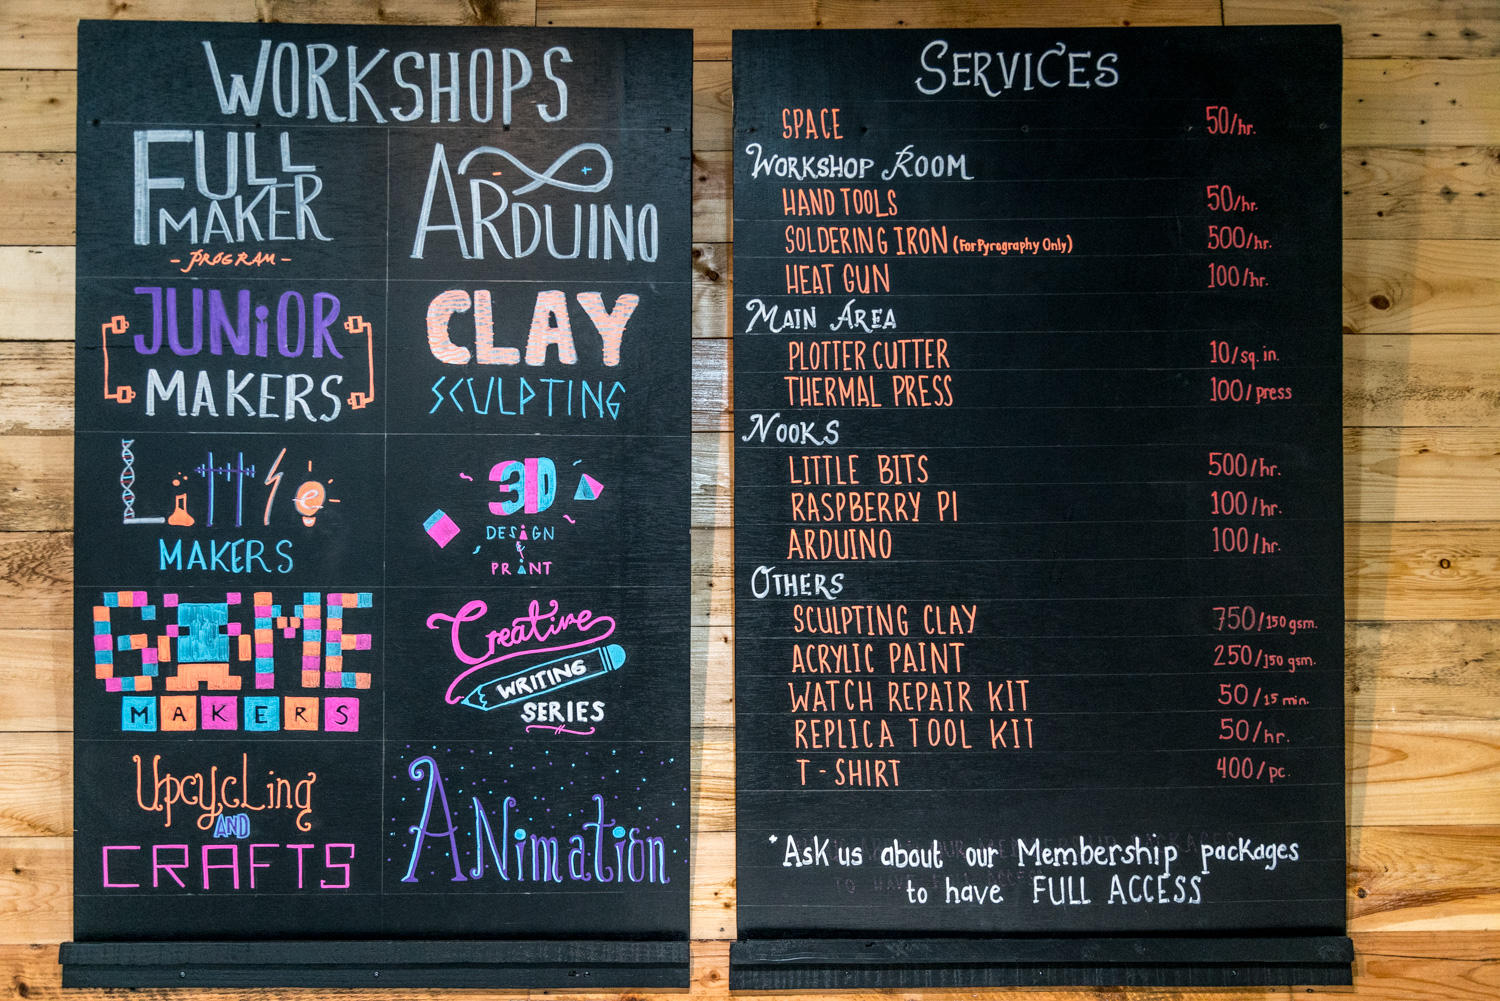 WORKSHOPS
FULL
MAKER
- PROGRAM -
ARDUINO
JUNiOR
MAKERS
CLAY
SCULPTING
Little
MAKERS
3D
DESiGN
&
PRiNT
GAME
MAKERS
Creative
WRITING
SERIES
UpcycLing
AND
CRAFTS
ANimation
SERVICES
SPACE 50/hr.
WORKSHOP ROOM
HAND TOOLS 50/hr.
SOLDERING IRON (For Pyrography Only) 500/hr.
HEAT GUN 100/hr.
MAIN AREA
PLOTTER CUTTER 10/sq.in.
THERMAL PRESS 100/press
NOOKS
LITTLE BITS 500/hr.
RASPBERRY PI 100/hr.
ARDUINO 100/hr.
OTHERS
SCULPTING CLAY 750/150 gsm.
ACRYLIC PAINT 250/150 gsm.
WATCH REPAIR KIT 50/15 min.
REPLICA TOOL KIT 50/hr.
T-SHIRT 400/pc.
*Ask us about our Membership packages
to have FULL ACCESS